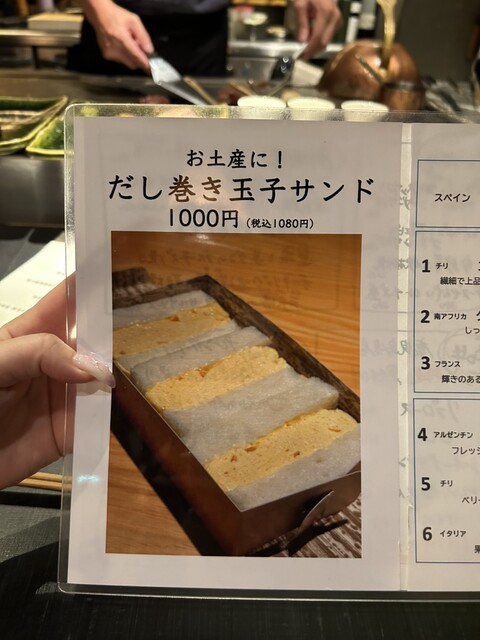 お土産に！
だし巻き玉子サンド
1000円（税込1080円）
スペイン
1 チリ
繊細で上品
2 南アフリカ
しっ
3 フランス
輝きのある
4 アルゼンチン
フレッシ
5 チリ
ベリー
6 イタリア
果